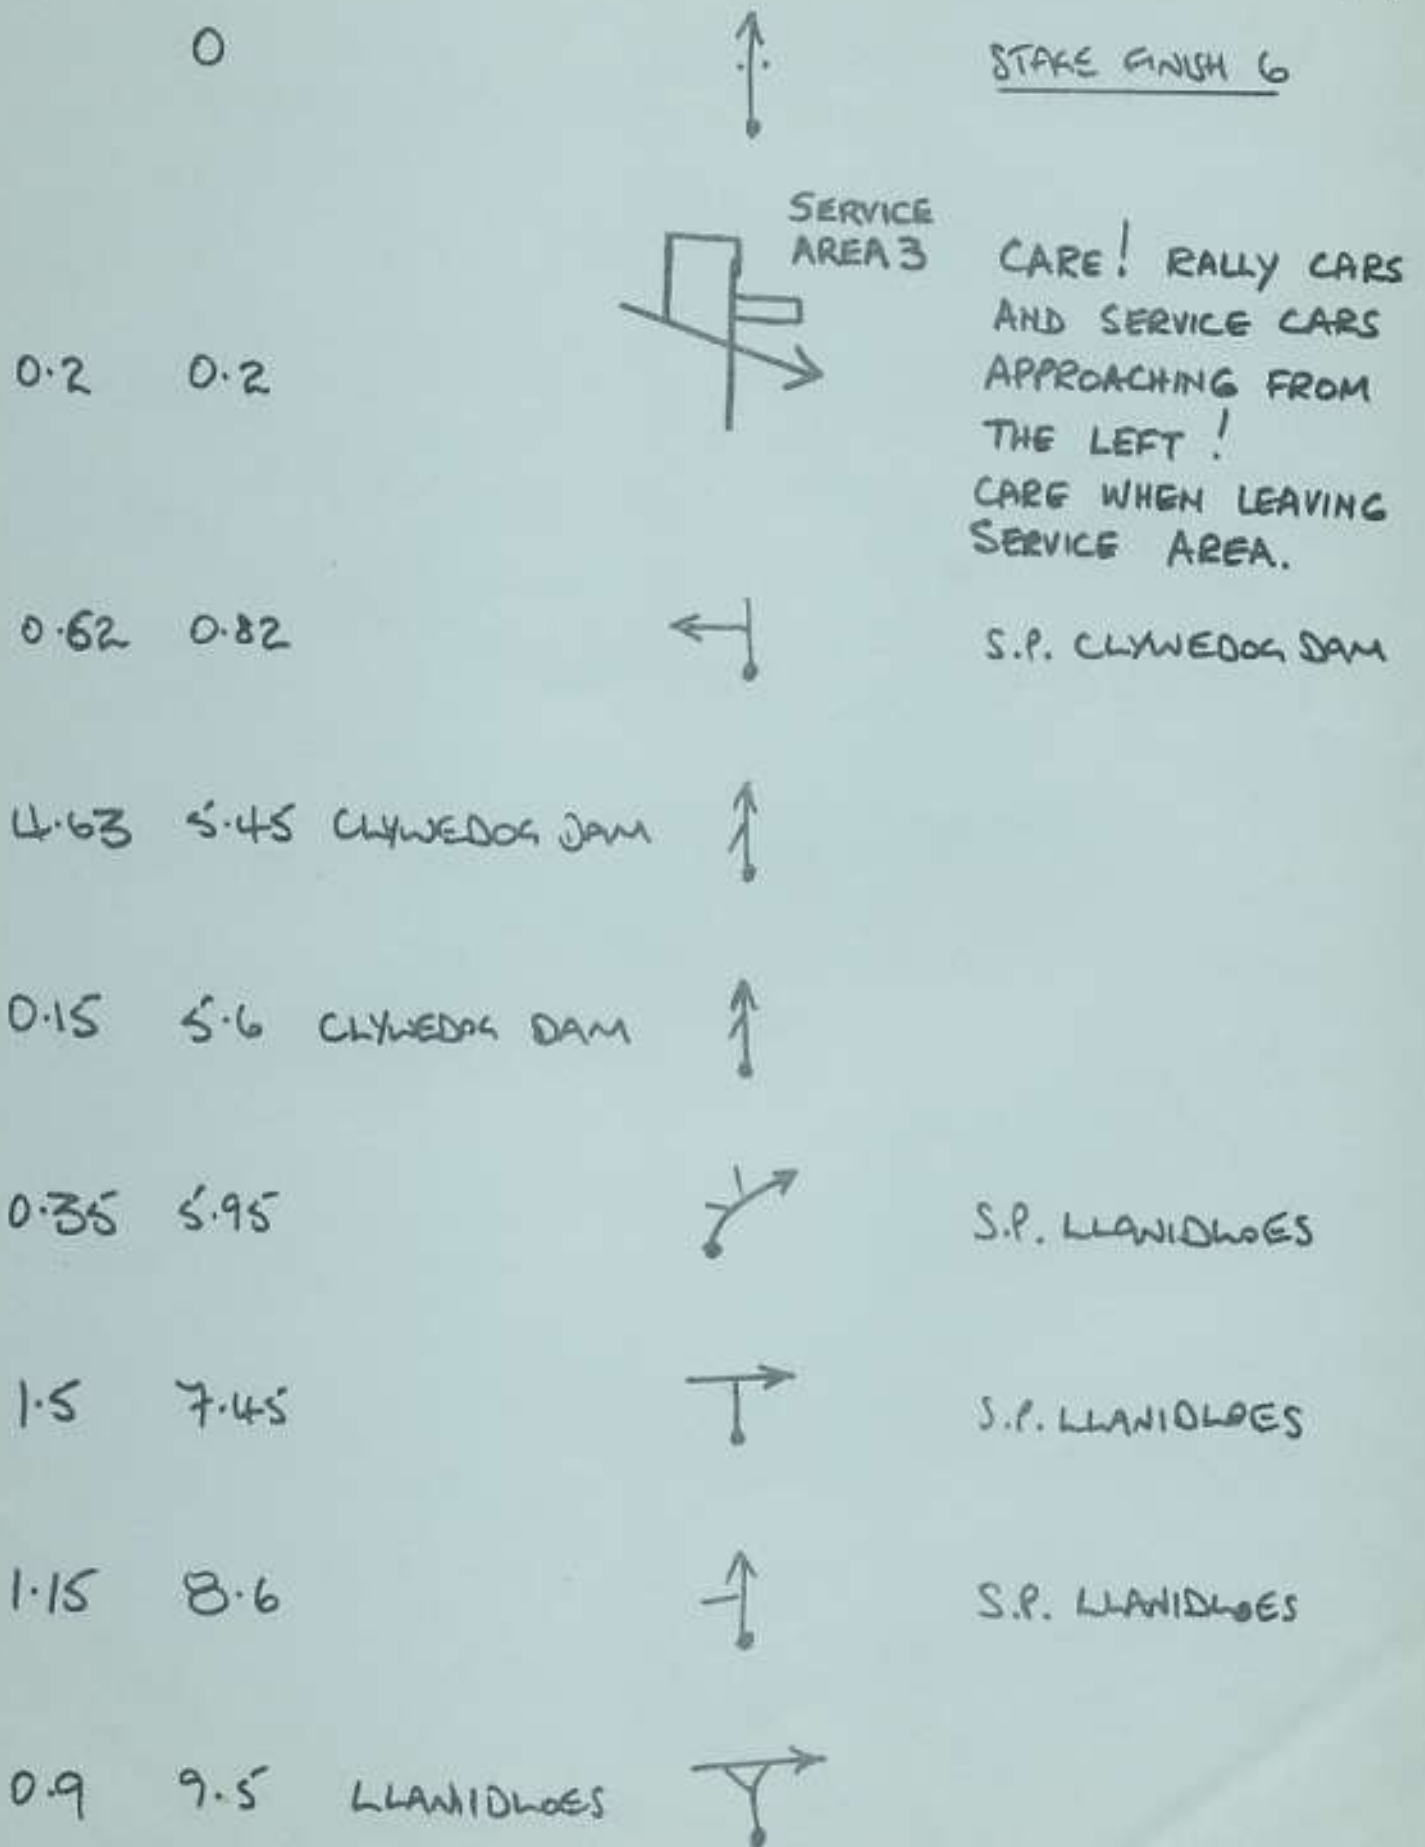 0 STAGE FINISH 6
SERVICE
AREA 3
CARE! RALLY CARS
AND SERVICE CARS
0.2 0.2 APPROACHING FROM
THE LEFT!
CARE WHEN LEAVING
SERVICE AREA.
0.62 0.82 S.P. CLYWEDOG DAM
4.63 5.45 CLYWEDOG DAM
0.15 5.6 CLYWEDOG DAM
0.35 5.95 S.P. LLANIDLOES
1.5 7.45 S.P. LLANIDLOES
1.15 8.6 S.P. LLANIDLOES
0.9 9.5 LLANIDLOES